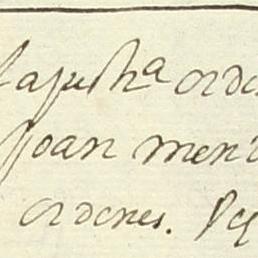 la justᵃ orde
Joan men
ordenes.